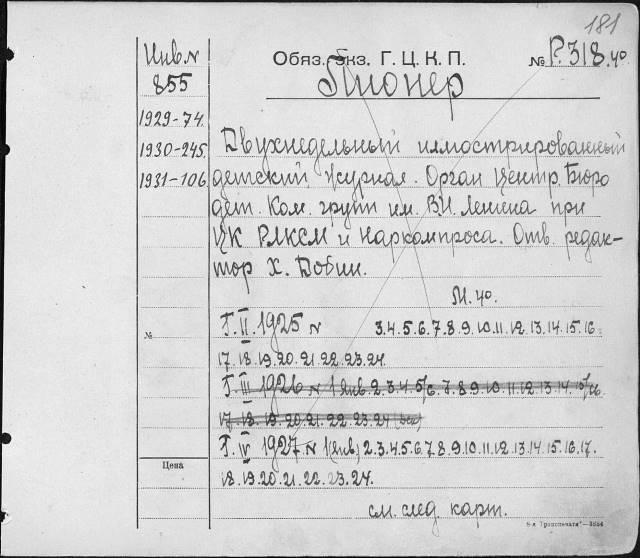 181
Инв. N
855
1929-74.
1930-245.
1931-106.
Обяз. экз. Г. Ц. К. П.
№ Р.318.40.
Пионер
Двухнедельный иллюстрированный
детский журнал. Орган Центр. Бюро
дет. Ком. групп им. В.И. Ленина при
ЦК РЛКСМ и Наркомпроса. Отв. редак-
тор Х. Бобин.
М. 40.
№
Г. II. 1925 N 3.4.5.6.7.8.9.10.11.12.13.14.15.16.
17.18.19.20.21.22.23.24.
Г. III 1926 N 1 Янв. 2.3.4.5/6.7.8.9.10.11.12.13.14.15/16.
17.18.19.20.21.22.23.24
Г. IV 1927 N 1(янв) 2.3.4.5.6.7.8.9.10.11.12.13.14.15.16.17.
18.19.20.21.22.23.24.
Цена
см. след карт.